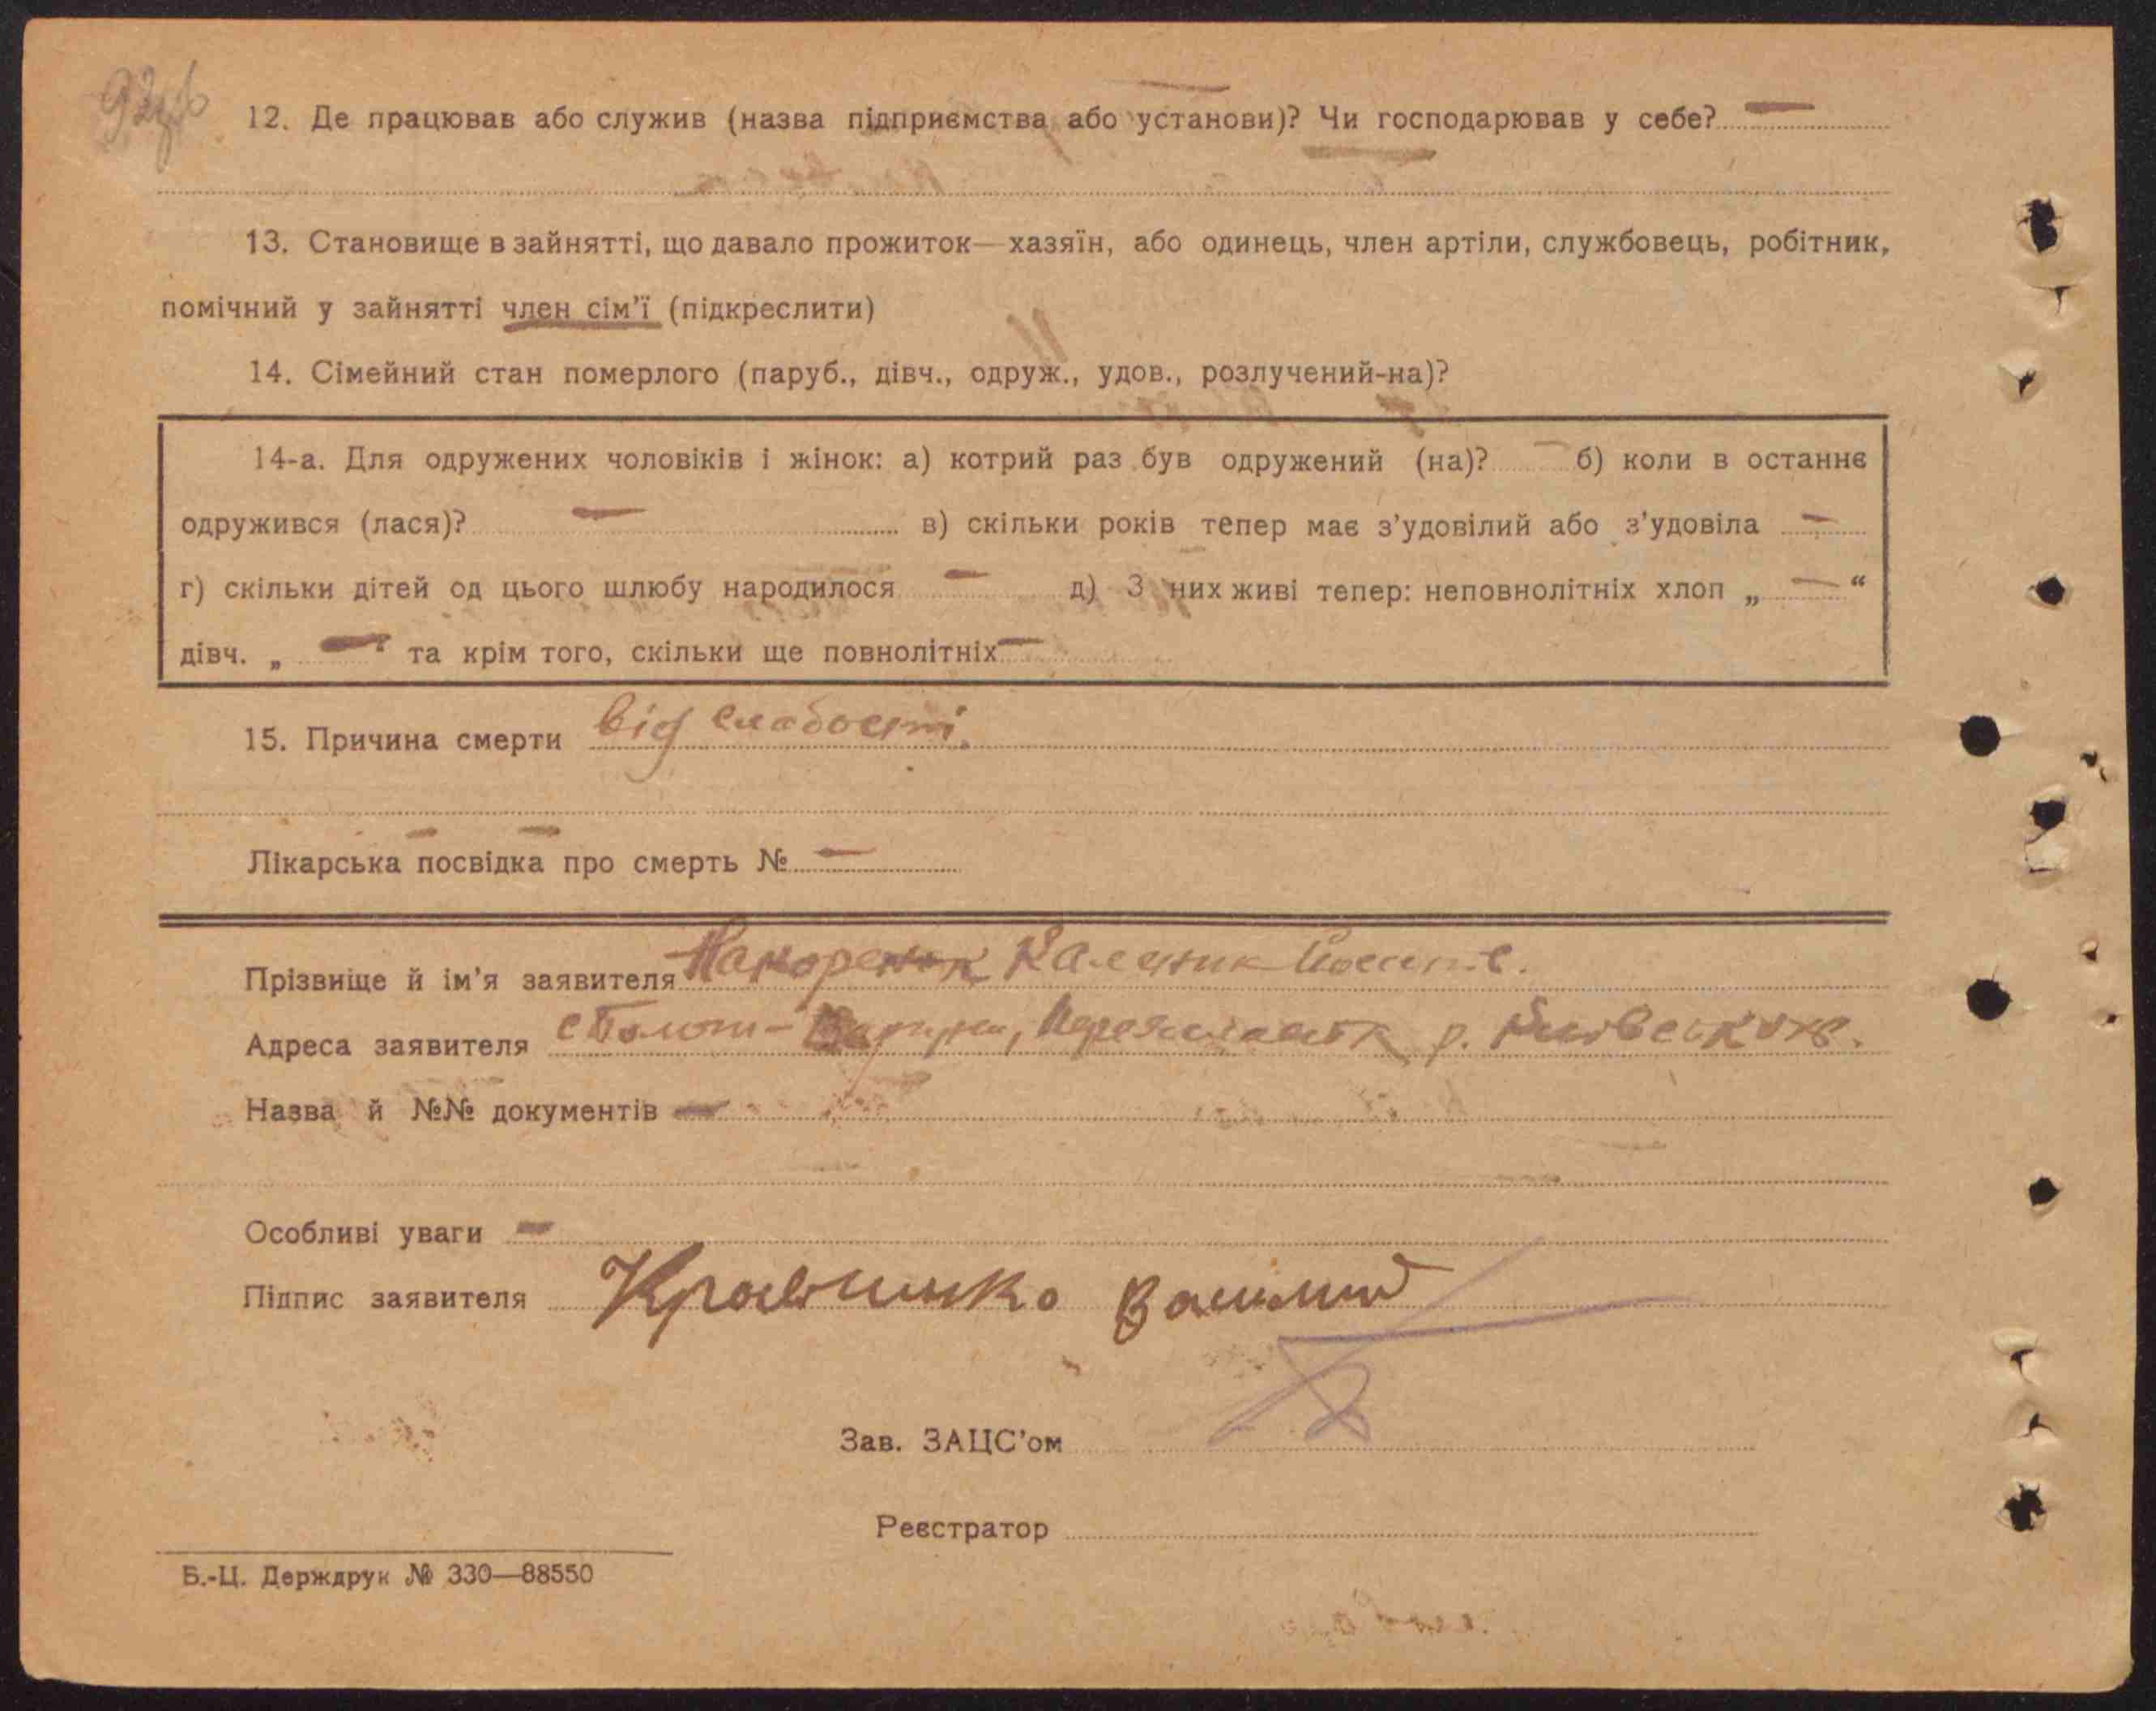 12. Де працював або служив (назва підприємства або установи)? Чи господарював у себе? —
13. Становище в зайнятті, що давало прожиток— хазяїн, або одинець, член артіли, службовець, робітник,
помічний у зайнятті член сім'ї (підкреслити)
14. Сімейний стан померлого (паруб., дівч., одруж., удов., розлучений-на)?
14-а. Для одружених чоловіків і жінок: а) котрий раз був одружений (на)? — б) коли в останнє
одружився (лася)? — в) скільки років тепер має з'удовілий або з'удовіла —
г) скільки дітей од цього шлюбу народилося — д) З них живі тепер: неповнолітніх хлоп „ — “
дівч. „ — “ та крім того, скільки ще повнолітніх —
15. Причина смерти від слабости.
Лікарська посвідка про смерть № —
Прізвище й ім'я заявителя Каленик
Адреса заявителя с р. Київськ
Назва й №№ документів —
Особливі уваги —
Підпис заявителя
Зав. ЗАЦС'ом
Реєстратор
Б.-Ц. Держдрук № 330—88550